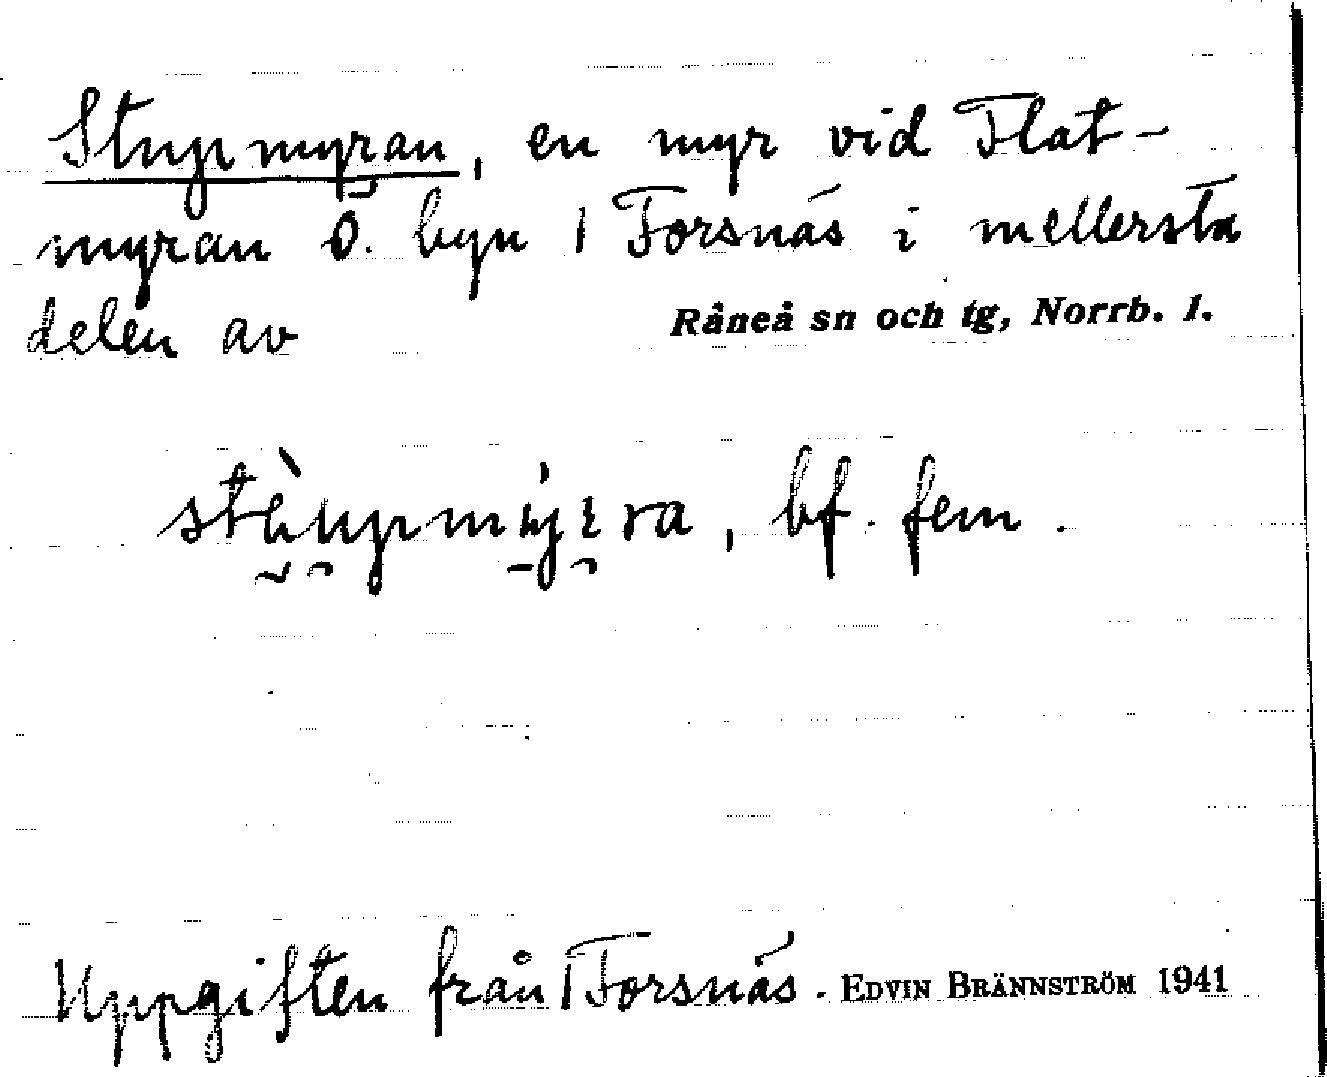 Stupmyran, en myr vid Flat-
myran Ö. byn / Forsnäs i mellersta
delen av Råneå sn och tg, Norrb. l.
bf. fem.
Uppgiften från / Forsnäs. EDVIN BRÄNNSTRÖM 1941